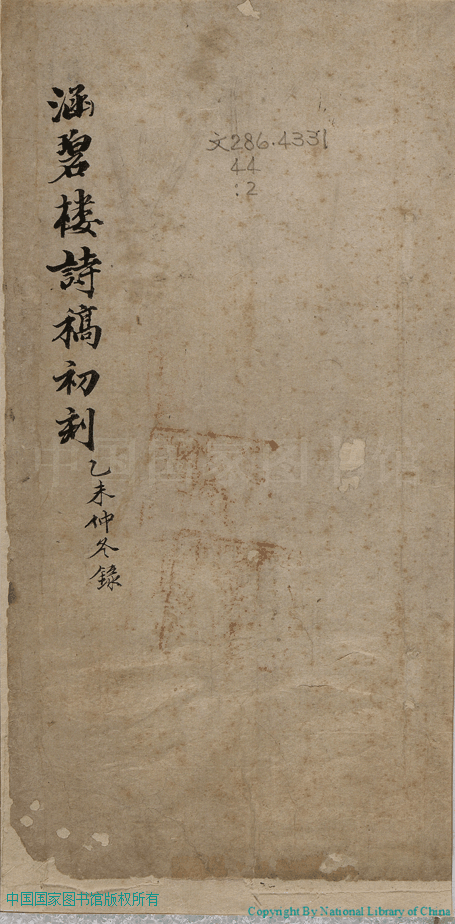 涵碧楼詩稿初刻
乙未仲冬錄
文286.4331
44
:2
中国国家图书馆
中国国家图书馆版权所有
Copyright By National Library of China